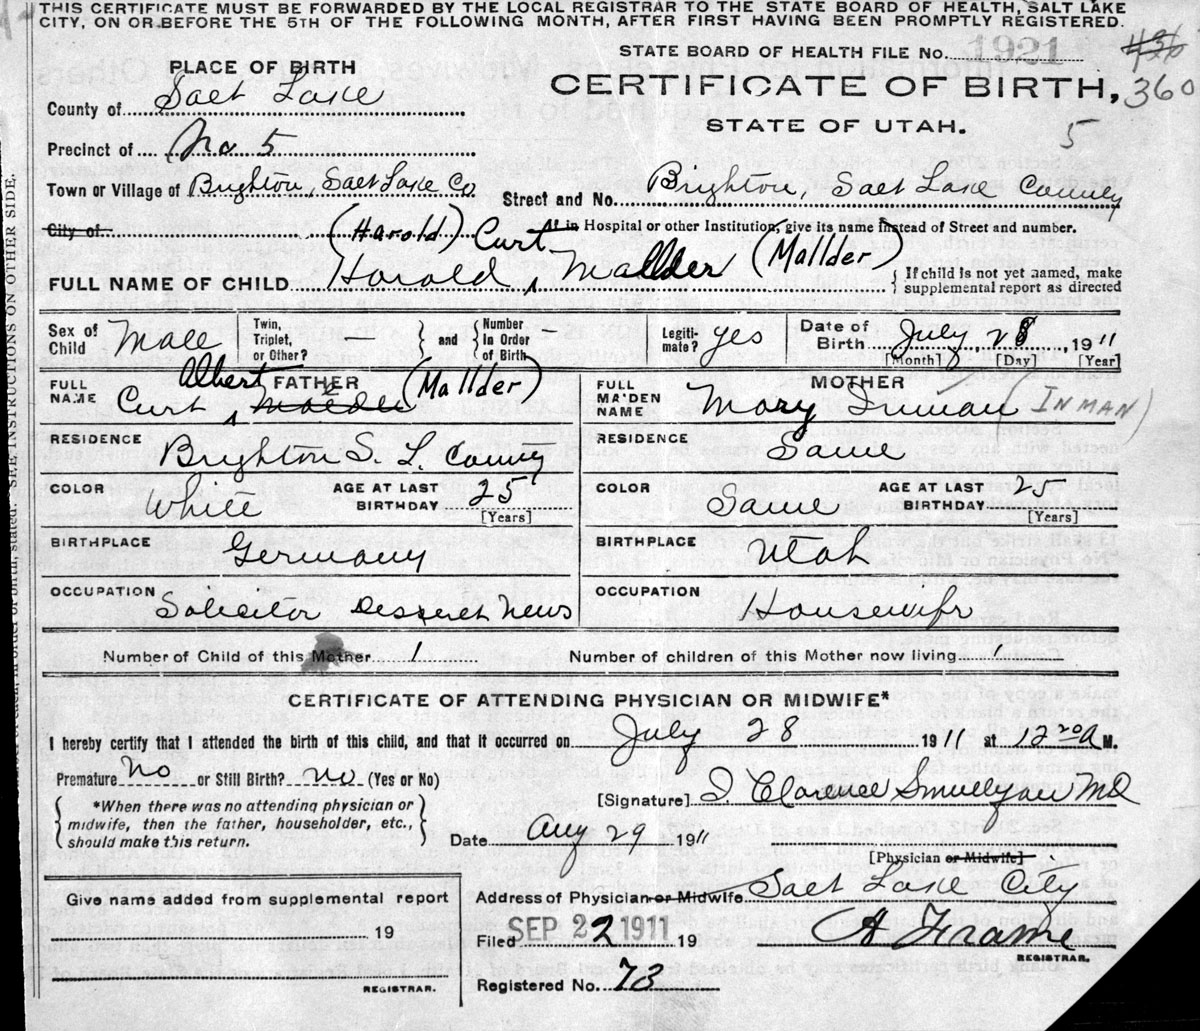 THIS CERTIFICATE MUST BE FORWARDED BY THE LOCAL REGISTRAR TO THE STATE BOARD OF HEALTH, SALT LAKE
CITY, ON OR BEFORE THE 5TH OF THE FOLLOWING MONTH, AFTER FIRST HAVING BEEN PROMPTLY REGISTERED.
STATE BOARD OF HEALTH FILE No. 1921
436
360
PLACE OF BIRTH
CERTIFICATE OF BIRTH,
County of Salt Lake
STATE OF UTAH.
5
Precinct of No 5
Town or Village of Brighton, Salt Lake Co
Street and No. Brighton, Salt Lake County
City of
At in Hospital or other Institution, give its name instead of Street and number.
(Harold) Curt (Mallder)
FULL NAME OF CHILD Harold Mallder
If child is not yet named, make
supplemental report as directed
Sex of Child Male
Twin, Triplet, or Other? —
and Number In Order of Birth
Legiti-mate? yes
Date of Birth July 28, 1911
[Month] [Day] [Year]
FULL NAME
FATHER
Curt Albert (Mallder)
FULL MAIDEN NAME
MOTHER
Mary Inman (INMAN)
RESIDENCE
Brighton S. L. County
RESIDENCE
Same
COLOR
White
AGE AT LAST BIRTHDAY 25
[Years]
COLOR
Same
AGE AT LAST BIRTHDAY 25
[Years]
BIRTHPLACE
Germany
BIRTHPLACE
Utah
OCCUPATION
Solicitor Desseret News
OCCUPATION
Housewife
Number of Child of this Mother 1
Number of children of this Mother now living 1
CERTIFICATE OF ATTENDING PHYSICIAN OR MIDWIFE*
I hereby certify that I attended the birth of this child, and that it occurred on July 28 1911 at 12 20 A M.
Premature No or Still Birth? no (Yes or No)
*When there was no attending physician or
midwife, then the father, householder, etc.,
should make this return.
[Signature] I. Clarence Smullyan MD
Date Aug 29 1911
[Physician or Midwife]
Give name added from supplemental report
19
REGISTRAR.
Address of Physician or Midwife Salt Lake City
Filed SEP 22 1911 19
A Frame
REGISTRAR.
Registered No. 73
SEE INSTRUCTIONS ON OTHER SIDE.